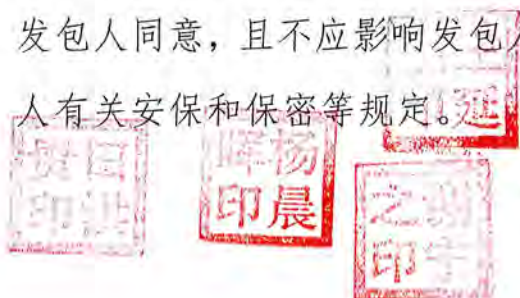 发包人同意，且不应影响发包人
人有关安保和保密等规定。
杨晨晖印
之印